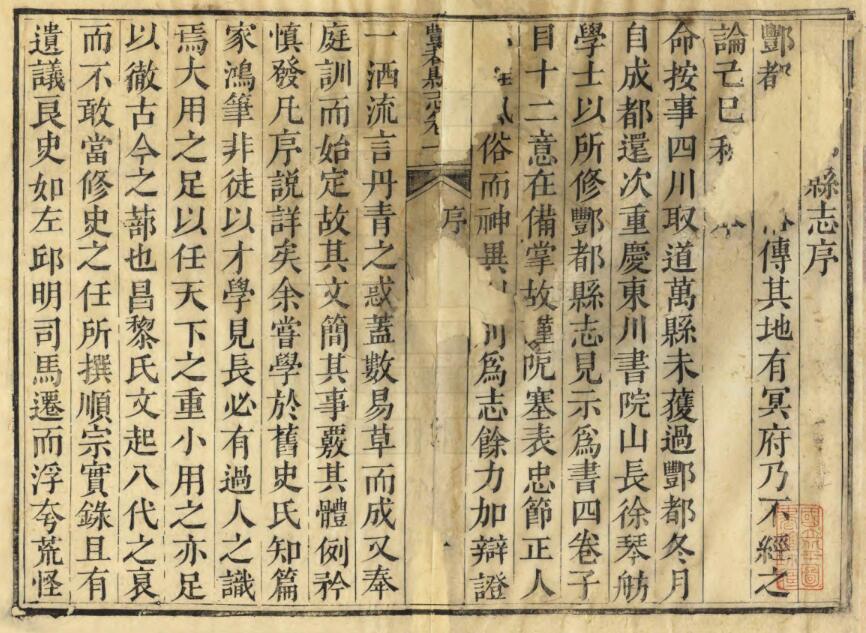 縣志序
酆都傳其地有冥府乃不經之
論己巳
命按事四川取道萬縣未獲過酆都冬月
自成都還次重慶東川書院山長徐琴舫
學士以所修酆都縣志見示爲書四卷子
目十二意在備掌故謹阨塞表忠節正人
俗而神異爲志餘力加辯證
豐都縣志卷一
序
一洒流言丹青之惑蓋數易草而成又奉
庭訓而始定故其文簡其事覈其體例矜
慎發凡序説詳矣余嘗學於舊史氏知篇
家鴻筆非徒以才學見長必有過人之識
焉大用之足以任天下之重小用之亦足
以徹古今之蔀也昌黎氏文起八代之衰
而不敢當修史之任所撰順宗實錄且有
遺議良史如左邱明司馬遷而浮夸荒怪